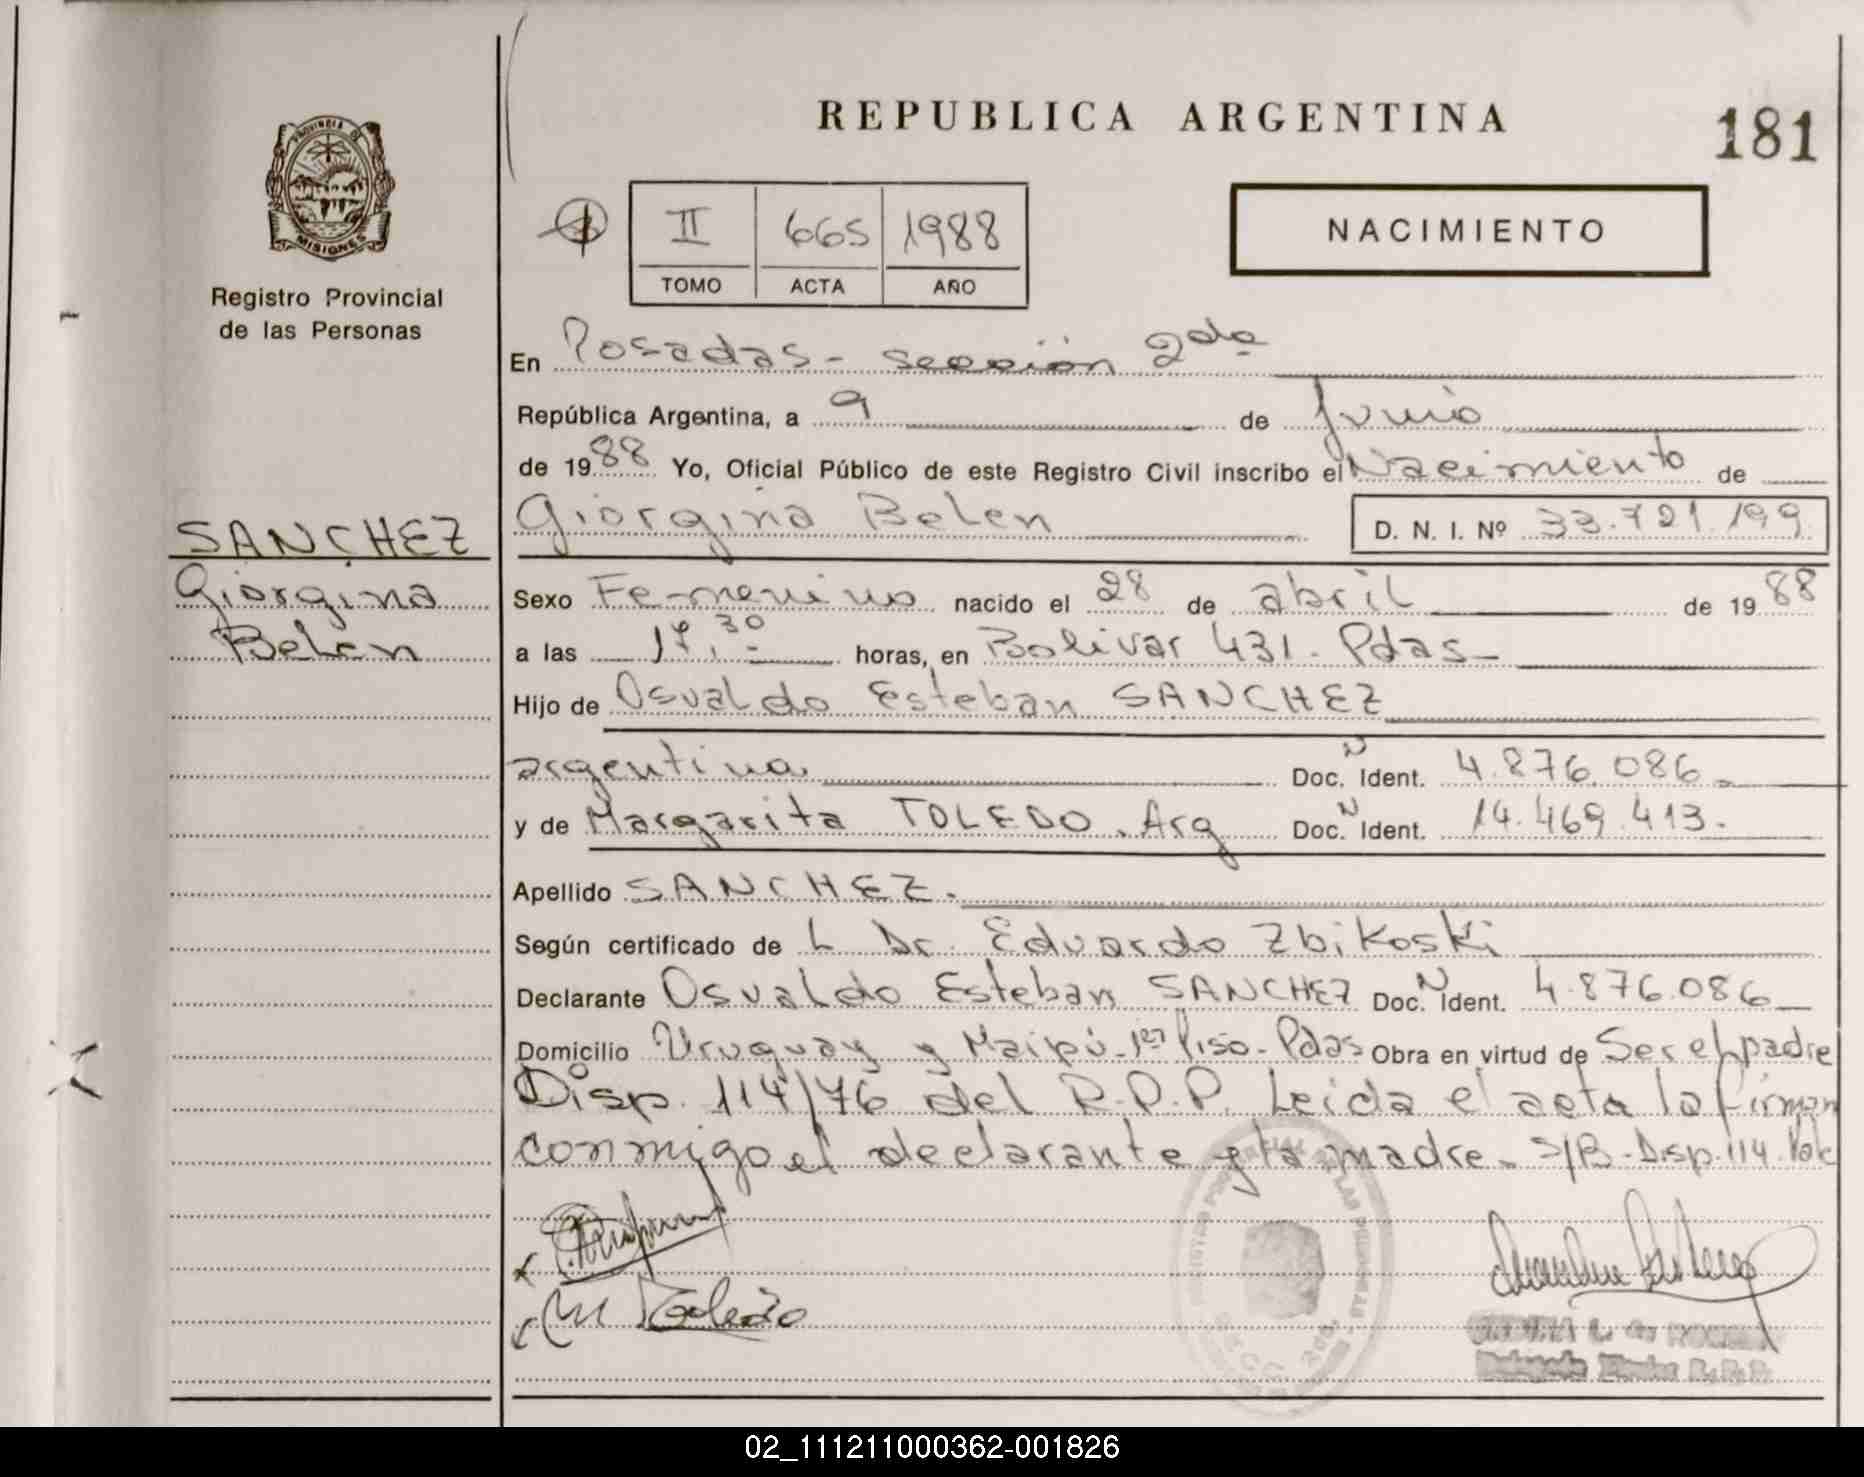 REPUBLICA ARGENTINA
181
PROVINCIA DE
MISIONES
Registro Provincial
de las Personas
II 665 1988
TOMO ACTA AÑO
NACIMIENTO
En Posadas - sección 2da
República Argentina, a 9 de Junio
de 1988 Yo, Oficial Público de este Registro Civil inscribo el Nacimiento de
Giorgina Belen D. N. I. Nº 33.721.199
SANCHEZ
Giorgina
Belen
Sexo Femenino nacido el 28 de abril de 1988
a las 17,30 horas, en Bolivar 431. Pdas-
Hijo de Osvaldo Esteban SANCHEZ
argentina Doc. N Ident. 4.876.086-
y de Margarita TOLEDO. Arg Doc. N Ident. 14.469.413.
Apellido SANCHEZ.
Según certificado de L Dr. Eduardo Zbikoski
Declarante Osvaldo Esteban SANCHEZ Doc. N Ident. 4.876.086
Domicilio Uruguay y Maipú-1er Piso-Pdas Obra en virtud de Ser el padre
Disp. 114/76 del R.P.P. Leida el acta la firman
conmigo el declarante y la madre. S/B-Disp.114.Vale
M Toledo
02_111211000362-001826